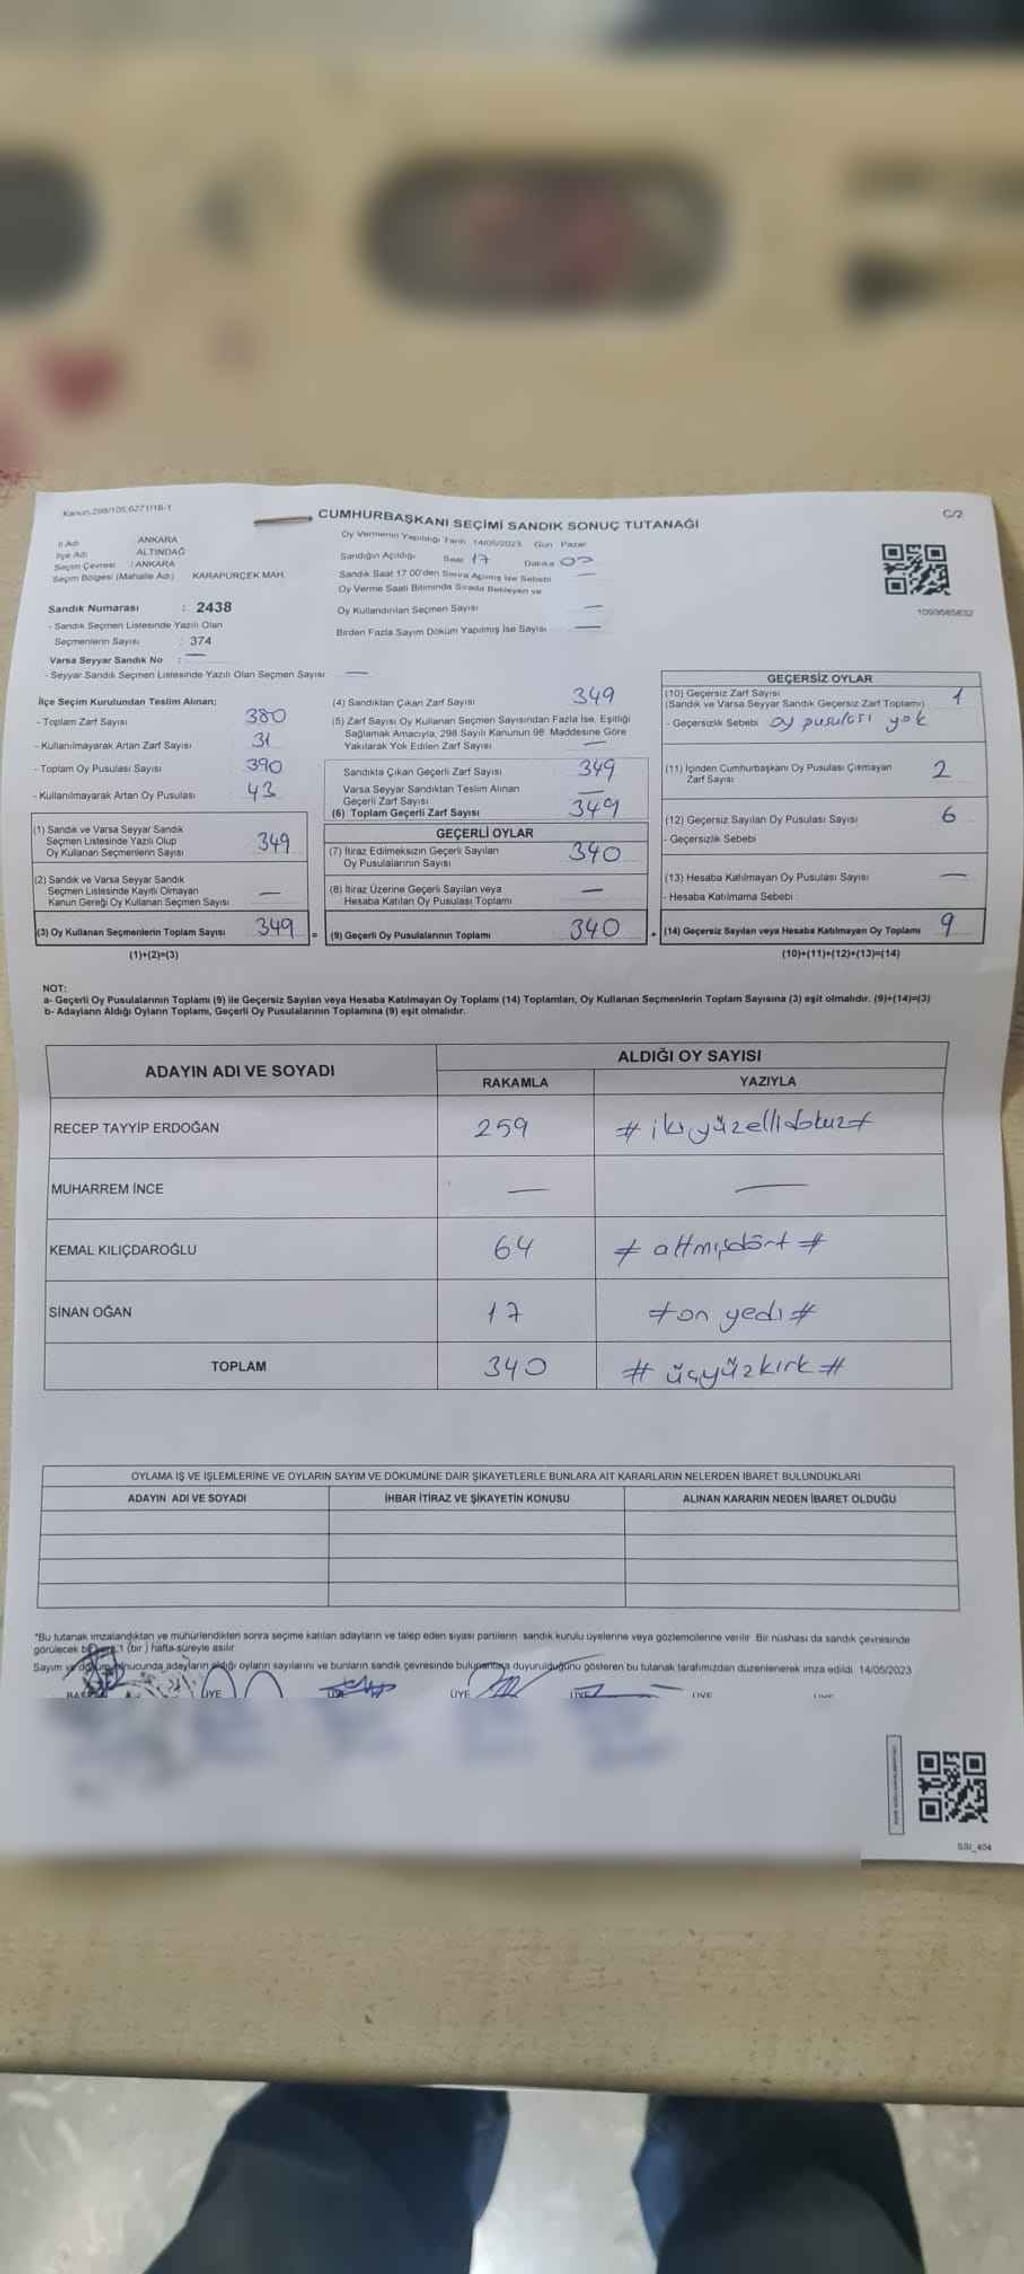 Kanun:298/105,6271/18-1
CUMHURBAŞKANI SEÇİMİ SANDIK SONUÇ TUTANAĞI
C/2
İl Adı ANKARA
İlçe Adı ALTINDAĞ
Seçim Çevresi : ANKARA
Seçim Bölgesi (Mahalle Adı) KARAPÜRÇEK MAH.
Oy Vermenin Yapıldığı Tarih 14/05/2023 Gün Pazar
Sandığın Açıldığı Saat 17 Dakika
Sandık Saat 17:00'den Sonra Açılmış İse Sebebi —
Oy Verme Saati Bitiminde Sırada Bekleyen ve
Oy Kullandırılan Seçmen Sayısı —
Birden Fazla Sayım Döküm Yapılmış İse Sayısı —
1093585632
Sandık Numarası : 2438
- Sandık Seçmen Listesinde Yazılı Olan
Seçmenlerin Sayısı : 374
Varsa Seyyar Sandık No : —
- Seyyar Sandık Seçmen Listesinde Yazılı Olan Seçmen Sayısı —
İlçe Seçim Kurulundan Teslim Alınan;
- Toplam Zarf Sayısı 380
- Kullanılmayarak Artan Zarf Sayısı 31
- Toplam Oy Pusulası Sayısı 390
- Kullanılmayarak Artan Oy Pusulası 43
(1) Sandık ve Varsa Seyyar Sandık
Seçmen Listesinde Yazılı Olup
Oy Kullanan Seçmenlerin Sayısı 349
(2) Sandık ve Varsa Seyyar Sandık
Seçmen Listesinde Kayıtlı Olmayan
Kanun Gereği Oy Kullanan Seçmen Sayısı —
(3) Oy Kullanan Seçmenlerin Toplam Sayısı 349 =
(1)+(2)=(3)
(4) Sandıktan Çıkan Zarf Sayısı 349
(5) Zarf Sayısı Oy Kullanan Seçmen Sayısından Fazla İse, Eşitliği
Sağlamak Amacıyla, 298 Sayılı Kanunun 98. Maddesine Göre
Yakılarak Yok Edilen Zarf Sayısı —
Sandıkta Çıkan Geçerli Zarf Sayısı 349
Varsa Seyyar Sandıktan Teslim Alınan
Geçerli Zarf Sayısı —
(6) Toplam Geçerli Zarf Sayısı 349
GEÇERLİ OYLAR
(7) İtiraz Edilmeksizin Geçerli Sayılan
Oy Pusulalarının Sayısı 340
(8) İtiraz Üzerine Geçerli Sayılan veya
Hesaba Katılan Oy Pusulası Toplamı —
(9) Geçerli Oy Pusulalarının Toplamı 340 +
GEÇERSİZ OYLAR
(10) Geçersiz Zarf Sayısı 1
(Sandık ve Varsa Seyyar Sandık Geçersiz Zarf Toplamı)
- Geçersizlik Sebebi oy pusulası yok
(11) İçinden Cumhurbaşkanı Oy Pusulası Çıkmayan
Zarf Sayısı 2
(12) Geçersiz Sayılan Oy Pusulası Sayısı 6
- Geçersizlik Sebebi
(13) Hesaba Katılmayan Oy Pusulası Sayısı —
- Hesaba Katılmama Sebebi
(14) Geçersiz Sayılan veya Hesaba Katılmayan Oy Toplamı 9
(10)+(11)+(12)+(13)=(14)
NOT:
a- Geçerli Oy Pusulalarının Toplamı (9) ile Geçersiz Sayılan veya Hesaba Katılmayan Oy Toplamı (14) Toplamları, Oy Kullanan Seçmenlerin Toplam Sayısına (3) eşit olmalıdır. (9)+(14)=(3)
b- Adayların Aldığı Oyların Toplamı, Geçerli Oy Pusulalarının Toplamına (9) eşit olmalıdır.
ADAYIN ADI VE SOYADI ALDIĞI OY SAYISI
RAKAMLA YAZIYLA
RECEP TAYYİP ERDOĞAN 259 # ikiyüzellidokuz #
MUHARREM İNCE — —
KEMAL KILIÇDAROĞLU 64 # altmışdört #
SİNAN OĞAN 17 # on yedi #
TOPLAM 340 # üçyüzkırk #
OYLAMA İŞ VE İŞLEMLERİNE VE OYLARIN SAYIM VE DÖKÜMÜNE DAİR ŞİKAYETLERLE BUNLARA AİT KARARLARIN NELERDEN İBARET BULUNDUKLARI
ADAYIN ADI VE SOYADI İHBAR İTİRAZ VE ŞİKAYETİN KONUSU ALINAN KARARIN NEDEN İBARET OLDUĞU
*Bu tutanak imzalandıktan ve mühürlendikten sonra seçime katılan adayların ve talep eden siyasi partilerin sandık kurulu üyelerine veya gözlemcilerine verilir. Bir nüshası da sandık çevresinde
görülecek bir yere 1 (bir) hafta süreyle asılır.
Sayım ve döküm sonucunda adayların aldığı oyların sayılarını ve bunların sandık çevresinde bulunanlara duyurulduğunu gösteren bu tutanak tarafımızdan düzenlenerek imza edildi. 14/05/2023
ÜYE ÜYE ÜYE ÜYE ÜYE ÜYE
SSI_404